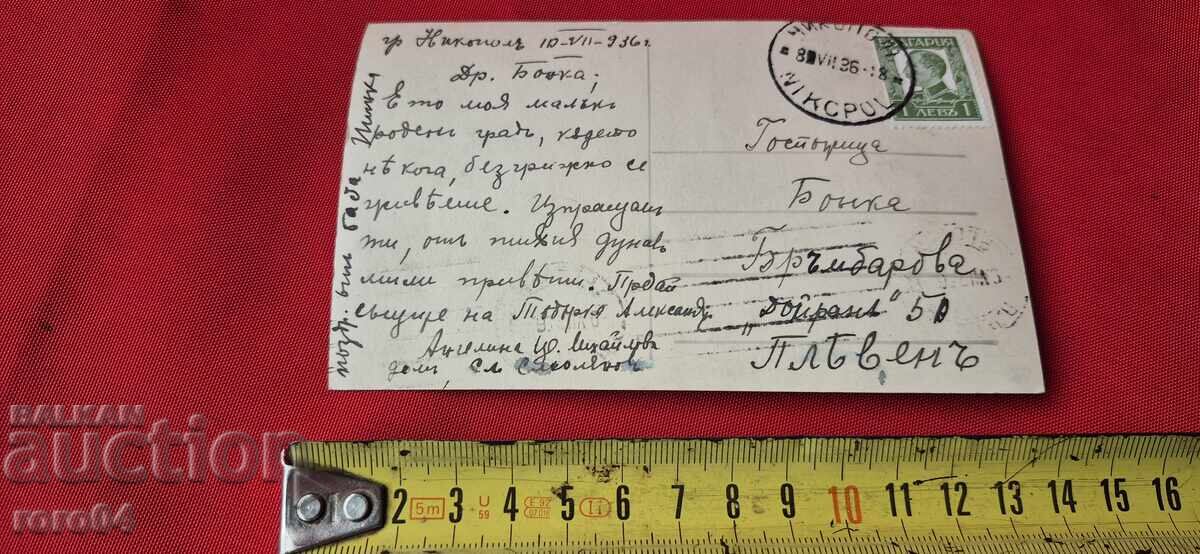 гр Никополъ 10-VII-936г
Др. Бонка,
Ето моя малъкъ
роденъ градъ, кѫдето
нѣкога, безгрижно се
живѣеше. Изпращамъ
ти, отъ тихия дунавъ
мили привѣти. Предай
сѫщите на Тодорка, Александъръ
Ангелина Ю. Михайлова
поздр. отъ баба
НИКОПОЛ
VII.36-18
NIKOPOL
БЪЛГАРИЯ
1 ЛЕВЪ 1
Госпожица
Бонка
Бръмбарова
„Дойранъ“ 50
Плѣвенъ
BALKAN
auction
roro64
2 5m 3 U 59 4 E.92 5 II 6 7 8 9 10 11 12 13 14 15 16